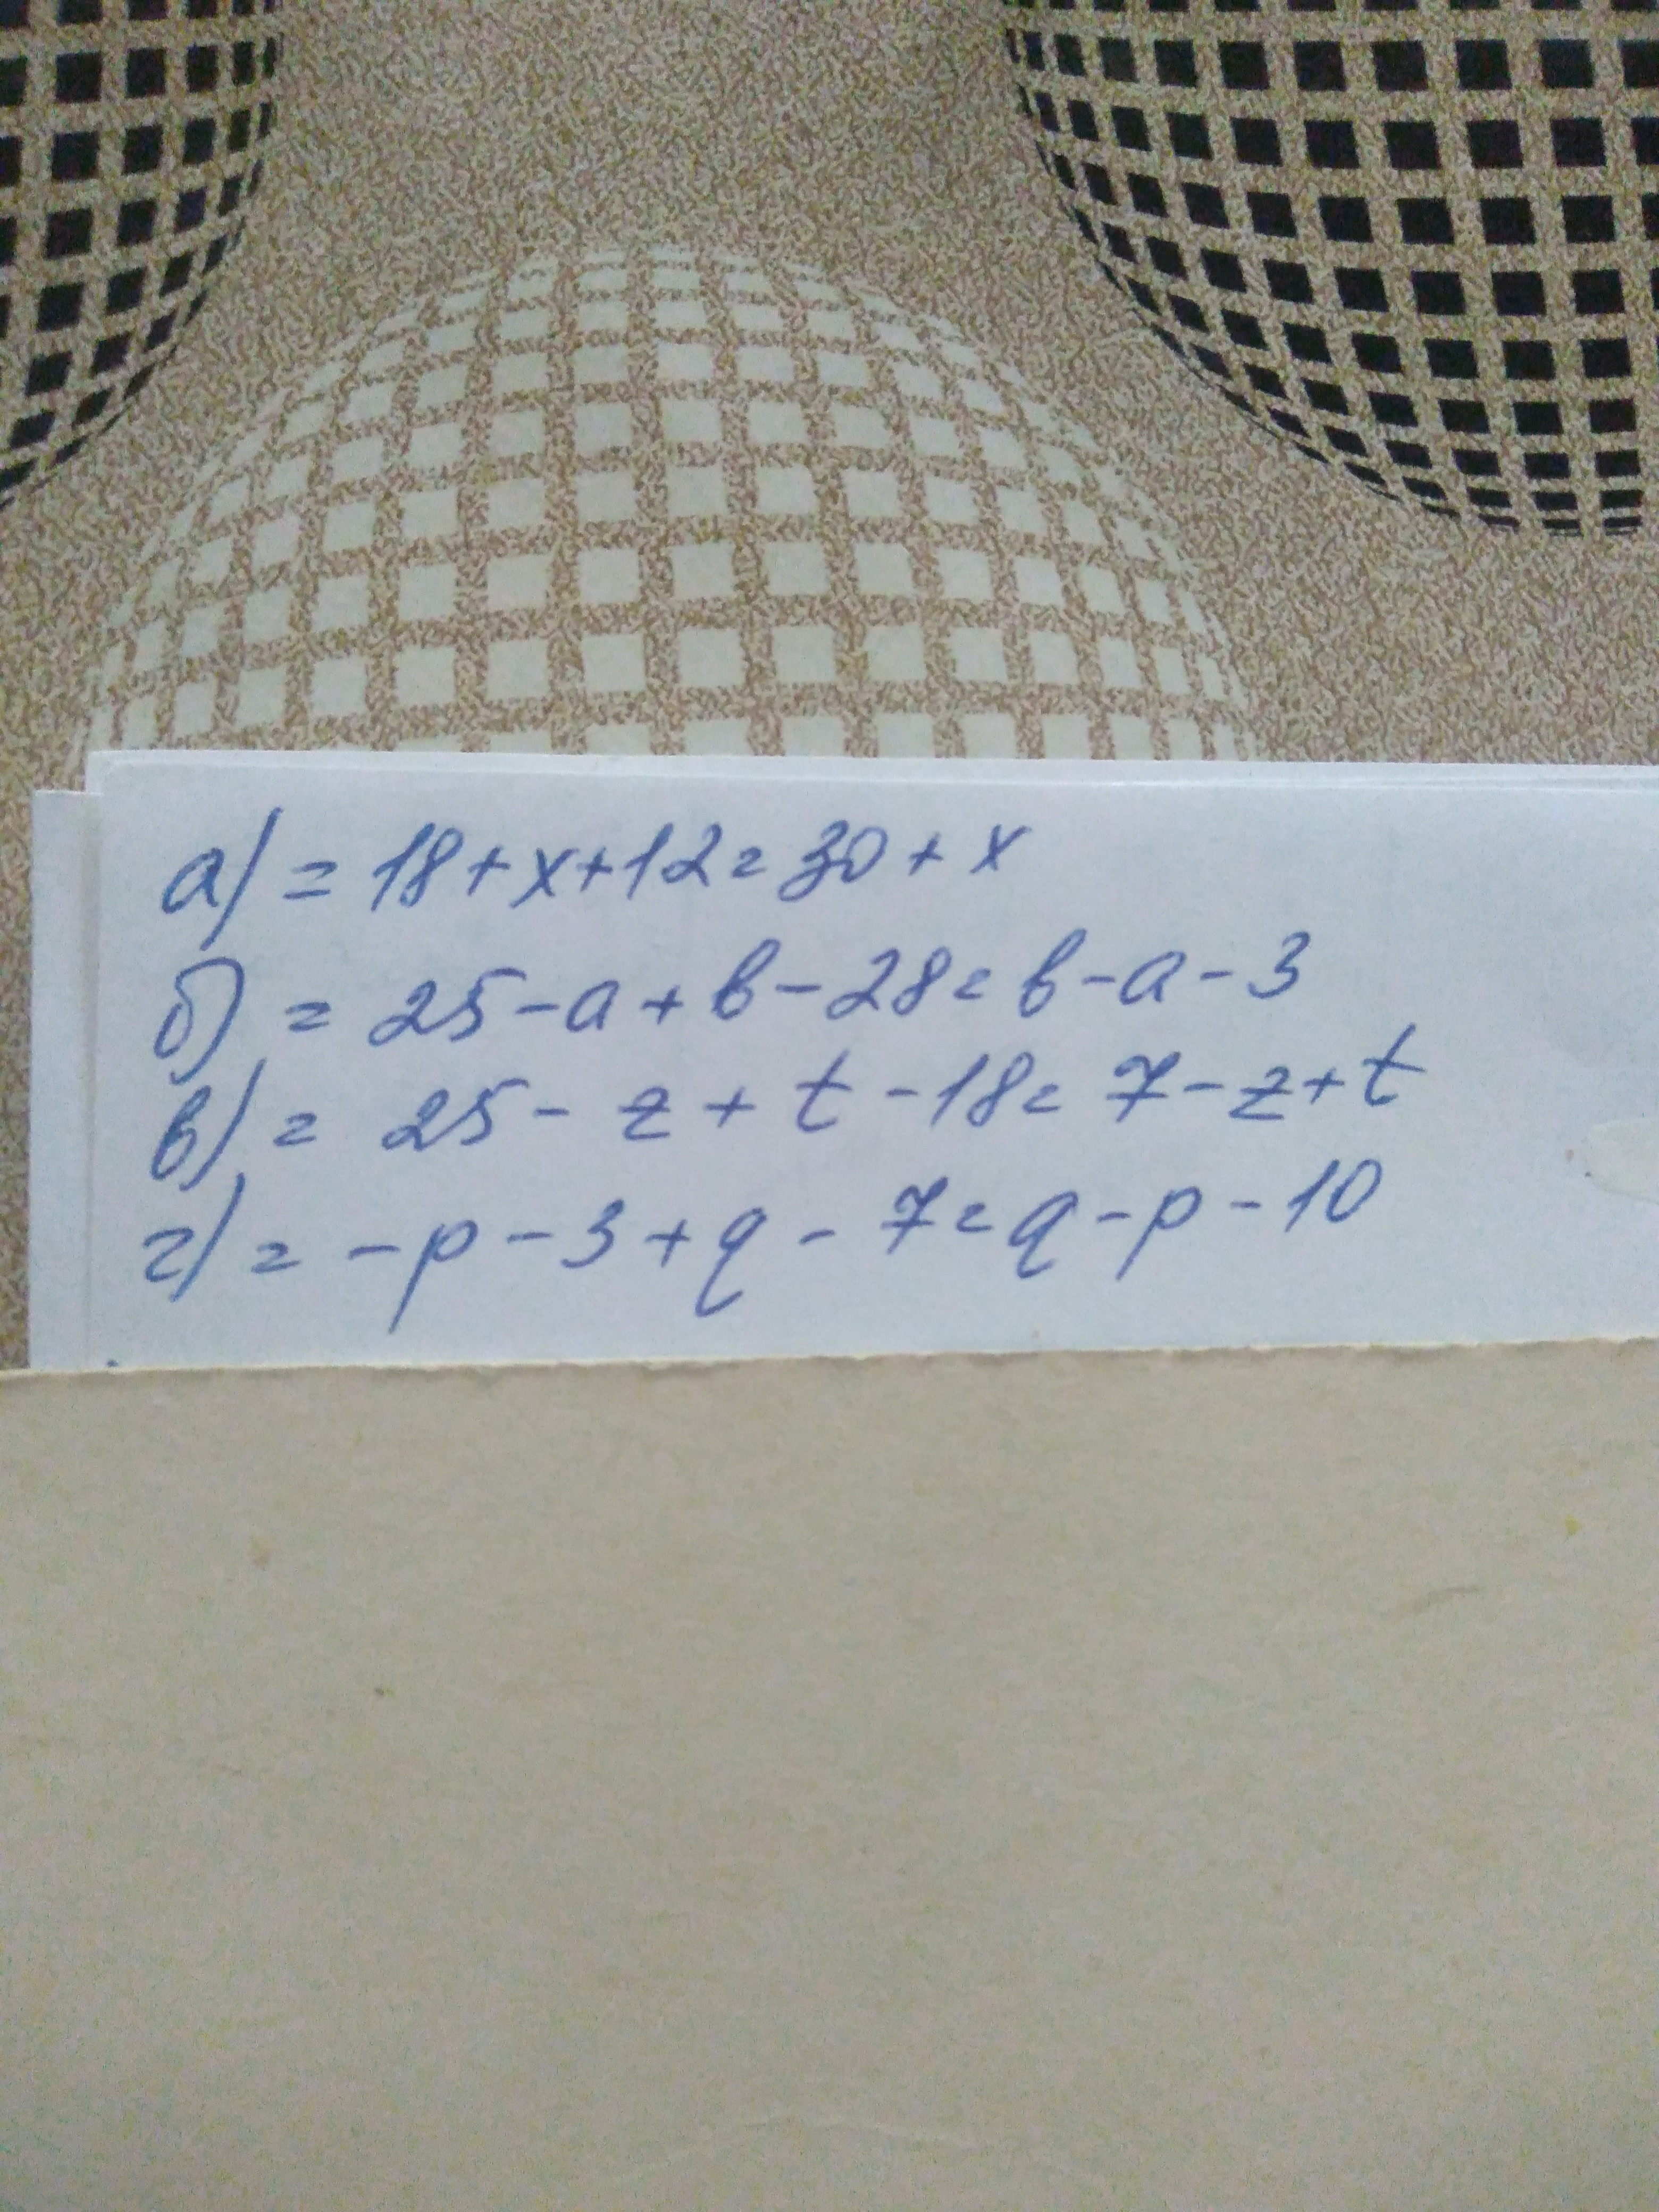 а) = 18 + x + 12 = 30 + x
б) = 25 - a + b - 28 = b - a - 3
в) = 25 - z + t - 18 = 7 - z + t
г) = - p - 3 + q - 7 = q - p - 10